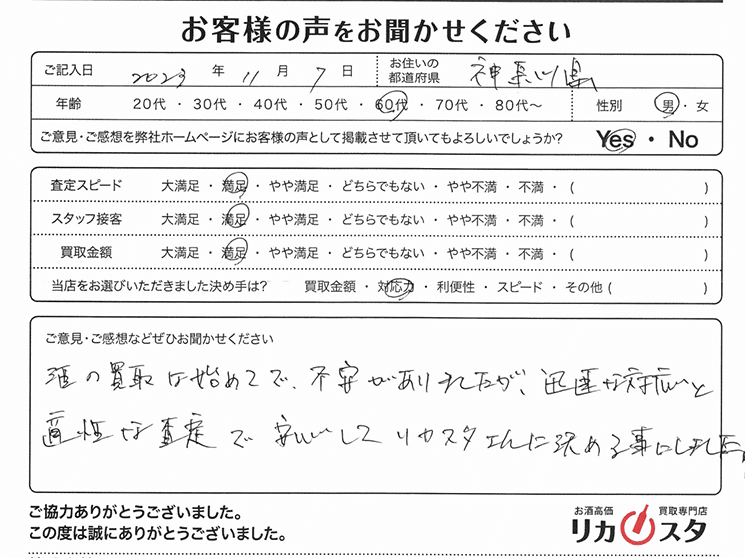 お客様の声をお聞かせください
ご記入日 2023 年 11 月 7 日 お住いの都道府県 神奈川県
年齢 20代 ・ 30代 ・ 40代 ・ 50代 ・ 60代 ・ 70代 ・ 80代〜 性別 男 ・ 女
ご意見・ご感想を弊社ホームページにお客様の声として掲載させて頂いてもよろしいでしょうか? Yes ・ No
査定スピード 大満足 ・ 満足 ・ やや満足 ・ どちらでもない ・ やや不満 ・ 不満 ・ ( )
スタッフ接客 大満足 ・ 満足 ・ やや満足 ・ どちらでもない ・ やや不満 ・ 不満 ・ ( )
買取金額 大満足 ・ 満足 ・ やや満足 ・ どちらでもない ・ やや不満 ・ 不満 ・ ( )
当店をお選びいただきました決め手は? 買取金額 ・ 対応力 ・ 利便性 ・ スピード ・ その他 ( )
ご意見・ご感想などぜひお聞かせください
酒の買取は始めてで、不安がありましたが、迅速な対応と
適性な査定で安心してリカスタさんに決める事にしました。
ご協力ありがとうございました。
この度は誠にありがとうございました。
お酒高価 買取専門店
リカスタ